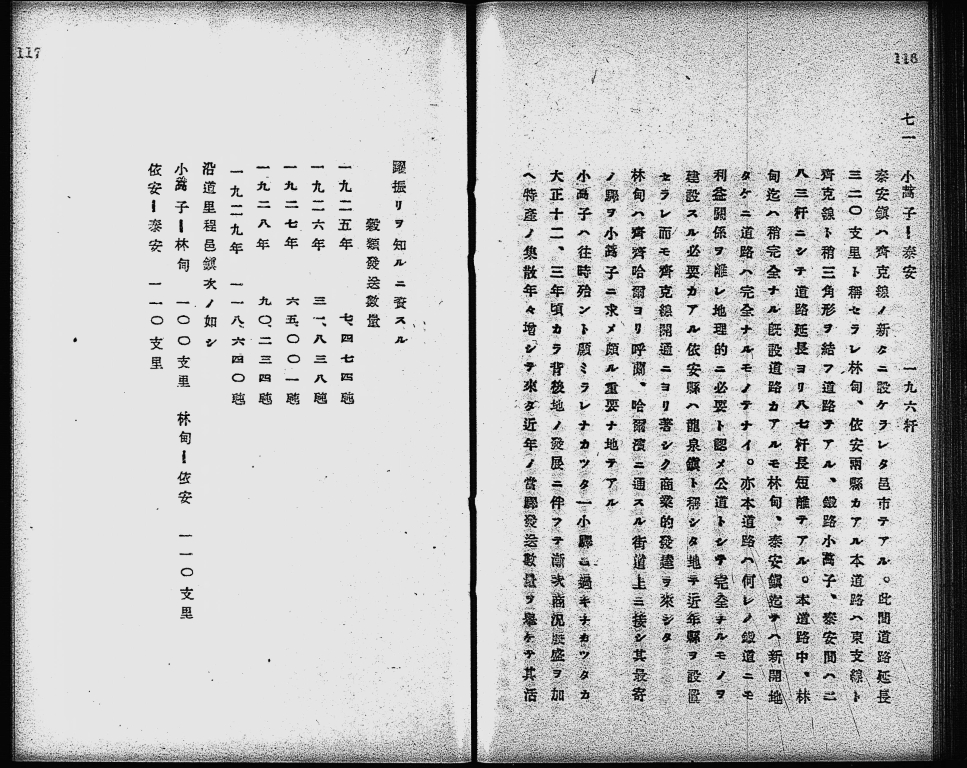 116
七一　小蒿子ー泰安　一九六粁
泰安鎭ハ齊克線ノ新タニ設ケラレタ邑市テアル。此間道路延長
三二〇支里ト稱セラレ林甸、依安兩縣カアル本道路ハ東支線ト
齊克線ト稍三角形ヲ結フ道路テアル、鐵路小蒿子、泰安間ハ二
八三粁ニシテ道路延長ヨリ八七粁長短離テアル。本道路中、林
甸迄ハ稍完全ナル既設道路カアルモ林甸、泰安鎭迄テハ新開地
タケニ道路ハ完全ナルモノテナイ。亦本道路ハ何レノ鐵道ニモ
利益關係ヲ離レ地理的ニ必要ト認メ公道トシテ完全ナルモノヲ
建設スル必要カアル依安縣ハ龍泉鎭ト稱シタ地テ近年縣ヲ設置
セラレ而モ齊克線開通ニヨリ著シク商業的發達ヲ來シタ
林甸ハ齊齊哈爾ヨリ呼蘭、哈爾濱ニ通スル街道上ニ接シ其最寄
ノ驛ヲ小蒿子ニ求メ頗ル重要ナ地テアル
小蒿子ハ往時殆ント顧ミラレナカツタ一小驛ニ過キナカツタカ
大正十二、三年頃カラ背後地ノ發展ニ伴フテ漸次商況殷盛ヲ加
ヘ特產ノ集散年々增シテ來タ近年ノ當驛發送數量ヲ擧ケテ其活
117
躍振リヲ知ルニ資スル
穀類發送數量
一九二五年　七、四七四瓲
一九二六年　三一、八三八瓲
一九二七年　六五、〇〇一瓲
一九二八年　九〇、二三四瓲
一九二九年　一一八、六四〇瓲
沿道里程邑鎭次ノ如シ
小蒿子ー林甸　一〇〇支里　林甸ー依安　一一〇支里
依安ー泰安　一一〇支里